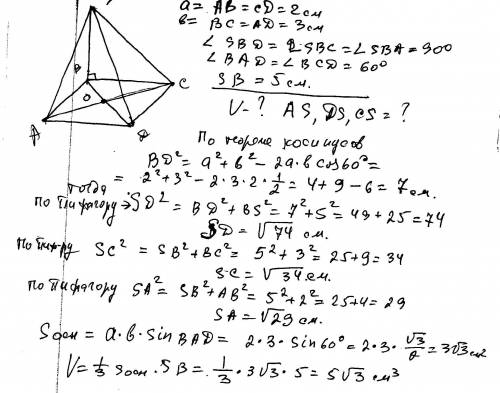 a = AB = CD = 2 см
b = BC = AD = 3 см
∠ SBD = ∠SBC = ∠SBA = 90°
∠ BAD = ∠ BCD = 60°
SB = 5 см.
V - ? AS, DS, CS = ?
B
O
C
A
D
По теореме косинусов
BD² = a² + b² - 2a·b cos60° =
= 2² + 3² - 2·3·2·1/2 = 4 + 9 - 6 = 7 см.
тогда
по Пифагору SD² = BD² + BS² = 7² + 5² = 49 + 25 = 74
SD = √74 см.
По Пиф-ру SC² = SB² + BC² = 5² + 3² = 25 + 9 = 34
SC = √34 см.
По Пифагору SA² = SB² + AB² = 5² + 2² = 25 + 4 = 29
SA = √29 см.
Sосн = a·b·sin BAD = 2·3·sin 60° = 2·3·√3/2 = 3√3 см²
V = 1/3 Sосн · SB = 1/3 · 3√3 · 5 = 5√3 см³